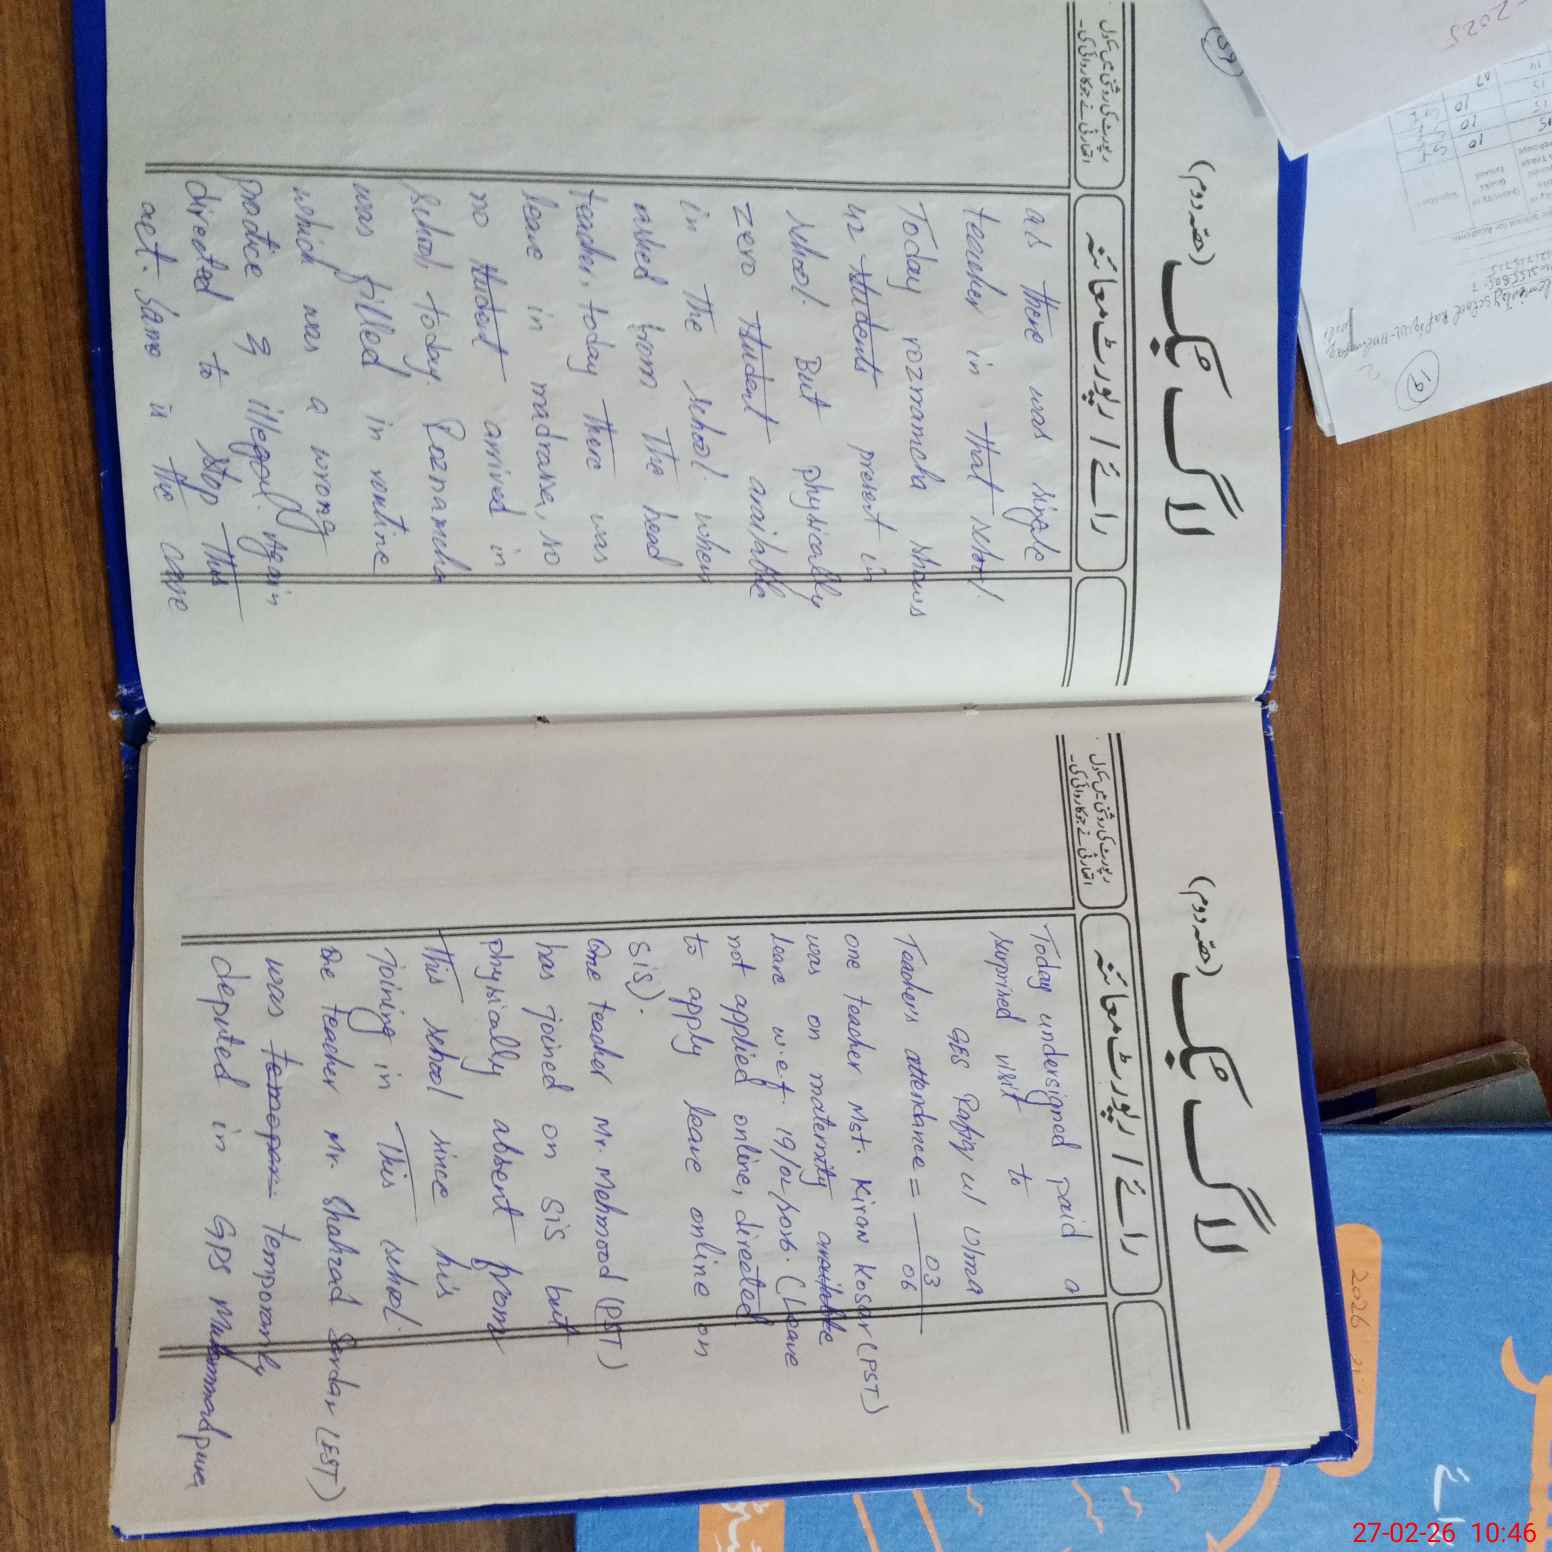 لاگ بک
(حصہ دوم)
رائے / رپورٹ معائنہ
رپورٹ کی روشنی میں سکول
اتھارٹی نے جو کاروائی کی۔
Today undersigned paid a
surprised visit to
GES Rafiq ul Ulma
Teachers attendance = 03/06
one teacher Mst. Kiran Kosar (PST)
was on maternity
leave w.e.f. 19/02/2026. (Leave
not applied online, directed
to apply leave online on
SIS).
One teacher Mr. Mehmood (PST)
has joined on SIS but
physically absent from
This school since his
joining in This school.
One teacher Mr. Shahzad Sardar (EST)
was temporarily
deputed in GPS Muhammad pura
لاگ بک
(حصہ دوم)
رائے / رپورٹ معائنہ
رپورٹ کی روشنی میں سکول
اتھارٹی نے جو کاروائی کی۔
as there was single
teacher in that school
Today roznamcha shows
42 students present in
school. But physically
zero student available
in the school. when
asked from The head
teacher, today there was
leave in madrasa, so
no student arrived in
school today. Roznamcha
was filled in routine
which was a wrong
practice & illegal. Again
directed to stop this
act. Same is the case
2025
(19)
2026
27-02-26 10:46